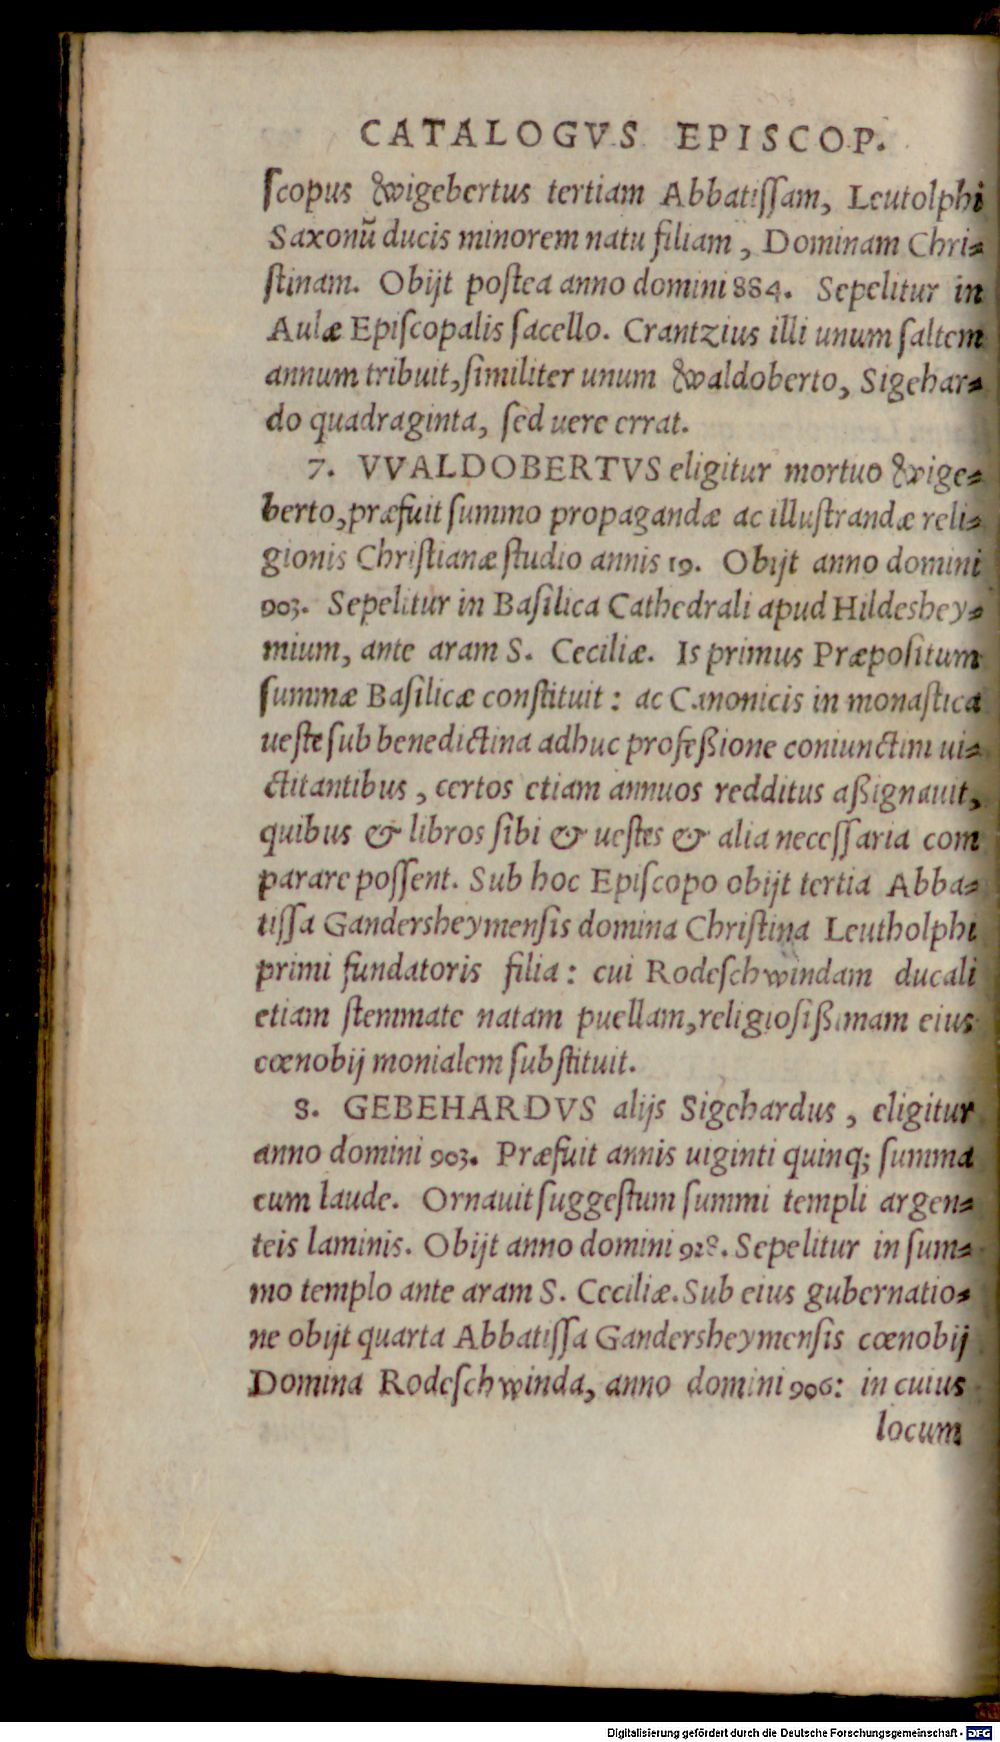 CATALOGVS EPISCOP.
ſcopus Wigebertus tertiam Abbatiſſam, Leutolphi
Saxonũ ducis minorem natu filiam, Dominam Chri-
ſtinam. Obijt poſtea anno domini 884. Sepelitur in
Aulæ Epiſcopalis ſacello. Crantzius illi unum ſaltem
annum tribuit, ſimiliter unum Waldoberto, Sigehar-
do quadraginta, ſed uere errat.
7. VVALDOBERTVS eligitur mortuo Wige-
berto, præfuit ſummo propagandæ ac illuſtrandæ reli-
gionis Chriſtianæ ſtudio annis 19. Obijt anno domini
903. Sepelitur in Baſilica Cathedrali apud Hildeshey-
mium, ante aram S. Ceciliæ. Is primus Præpoſitum
ſummæ Baſilicæ conſtituit: ac Canonicis in monaſtica
ueſte ſub benedictina adhuc profeßione coniunctim ui-
ctitantibus, certos etiam annuos redditus aßignauit,
quibus & libros ſibi & ueſtes & alia neceſſaria com
parare poſſent. Sub hoc Epiſcopo obijt tertia Abba-
tiſſa Gandersheymenſis domina Chriſtina Leutholphi
primi fundatoris filia: cui Rodeſchwindam ducali
etiam ſtemmate natam puellam, religioſißimam eius
cœnobij monialem ſubſtituit.
8. GEBEHARDVS alijs Sigehardus, eligitur
anno domini 903. Præfuit annis uiginti quinq; ſumma
cum laude. Ornauit ſuggeſtum ſummi templi argen-
teis laminis. Obijt anno domini 928. Sepelitur in ſum-
mo templo ante aram S. Ceciliæ. Sub eius gubernatio-
ne obijt quarta Abbatiſſa Gandersheymenſis cœnobij
Domina Rodeſchwinda, anno domini 906: in cuius
locum
Digitalisierung gefördert durch die Deutsche Forschungsgemeinschaft - DFG